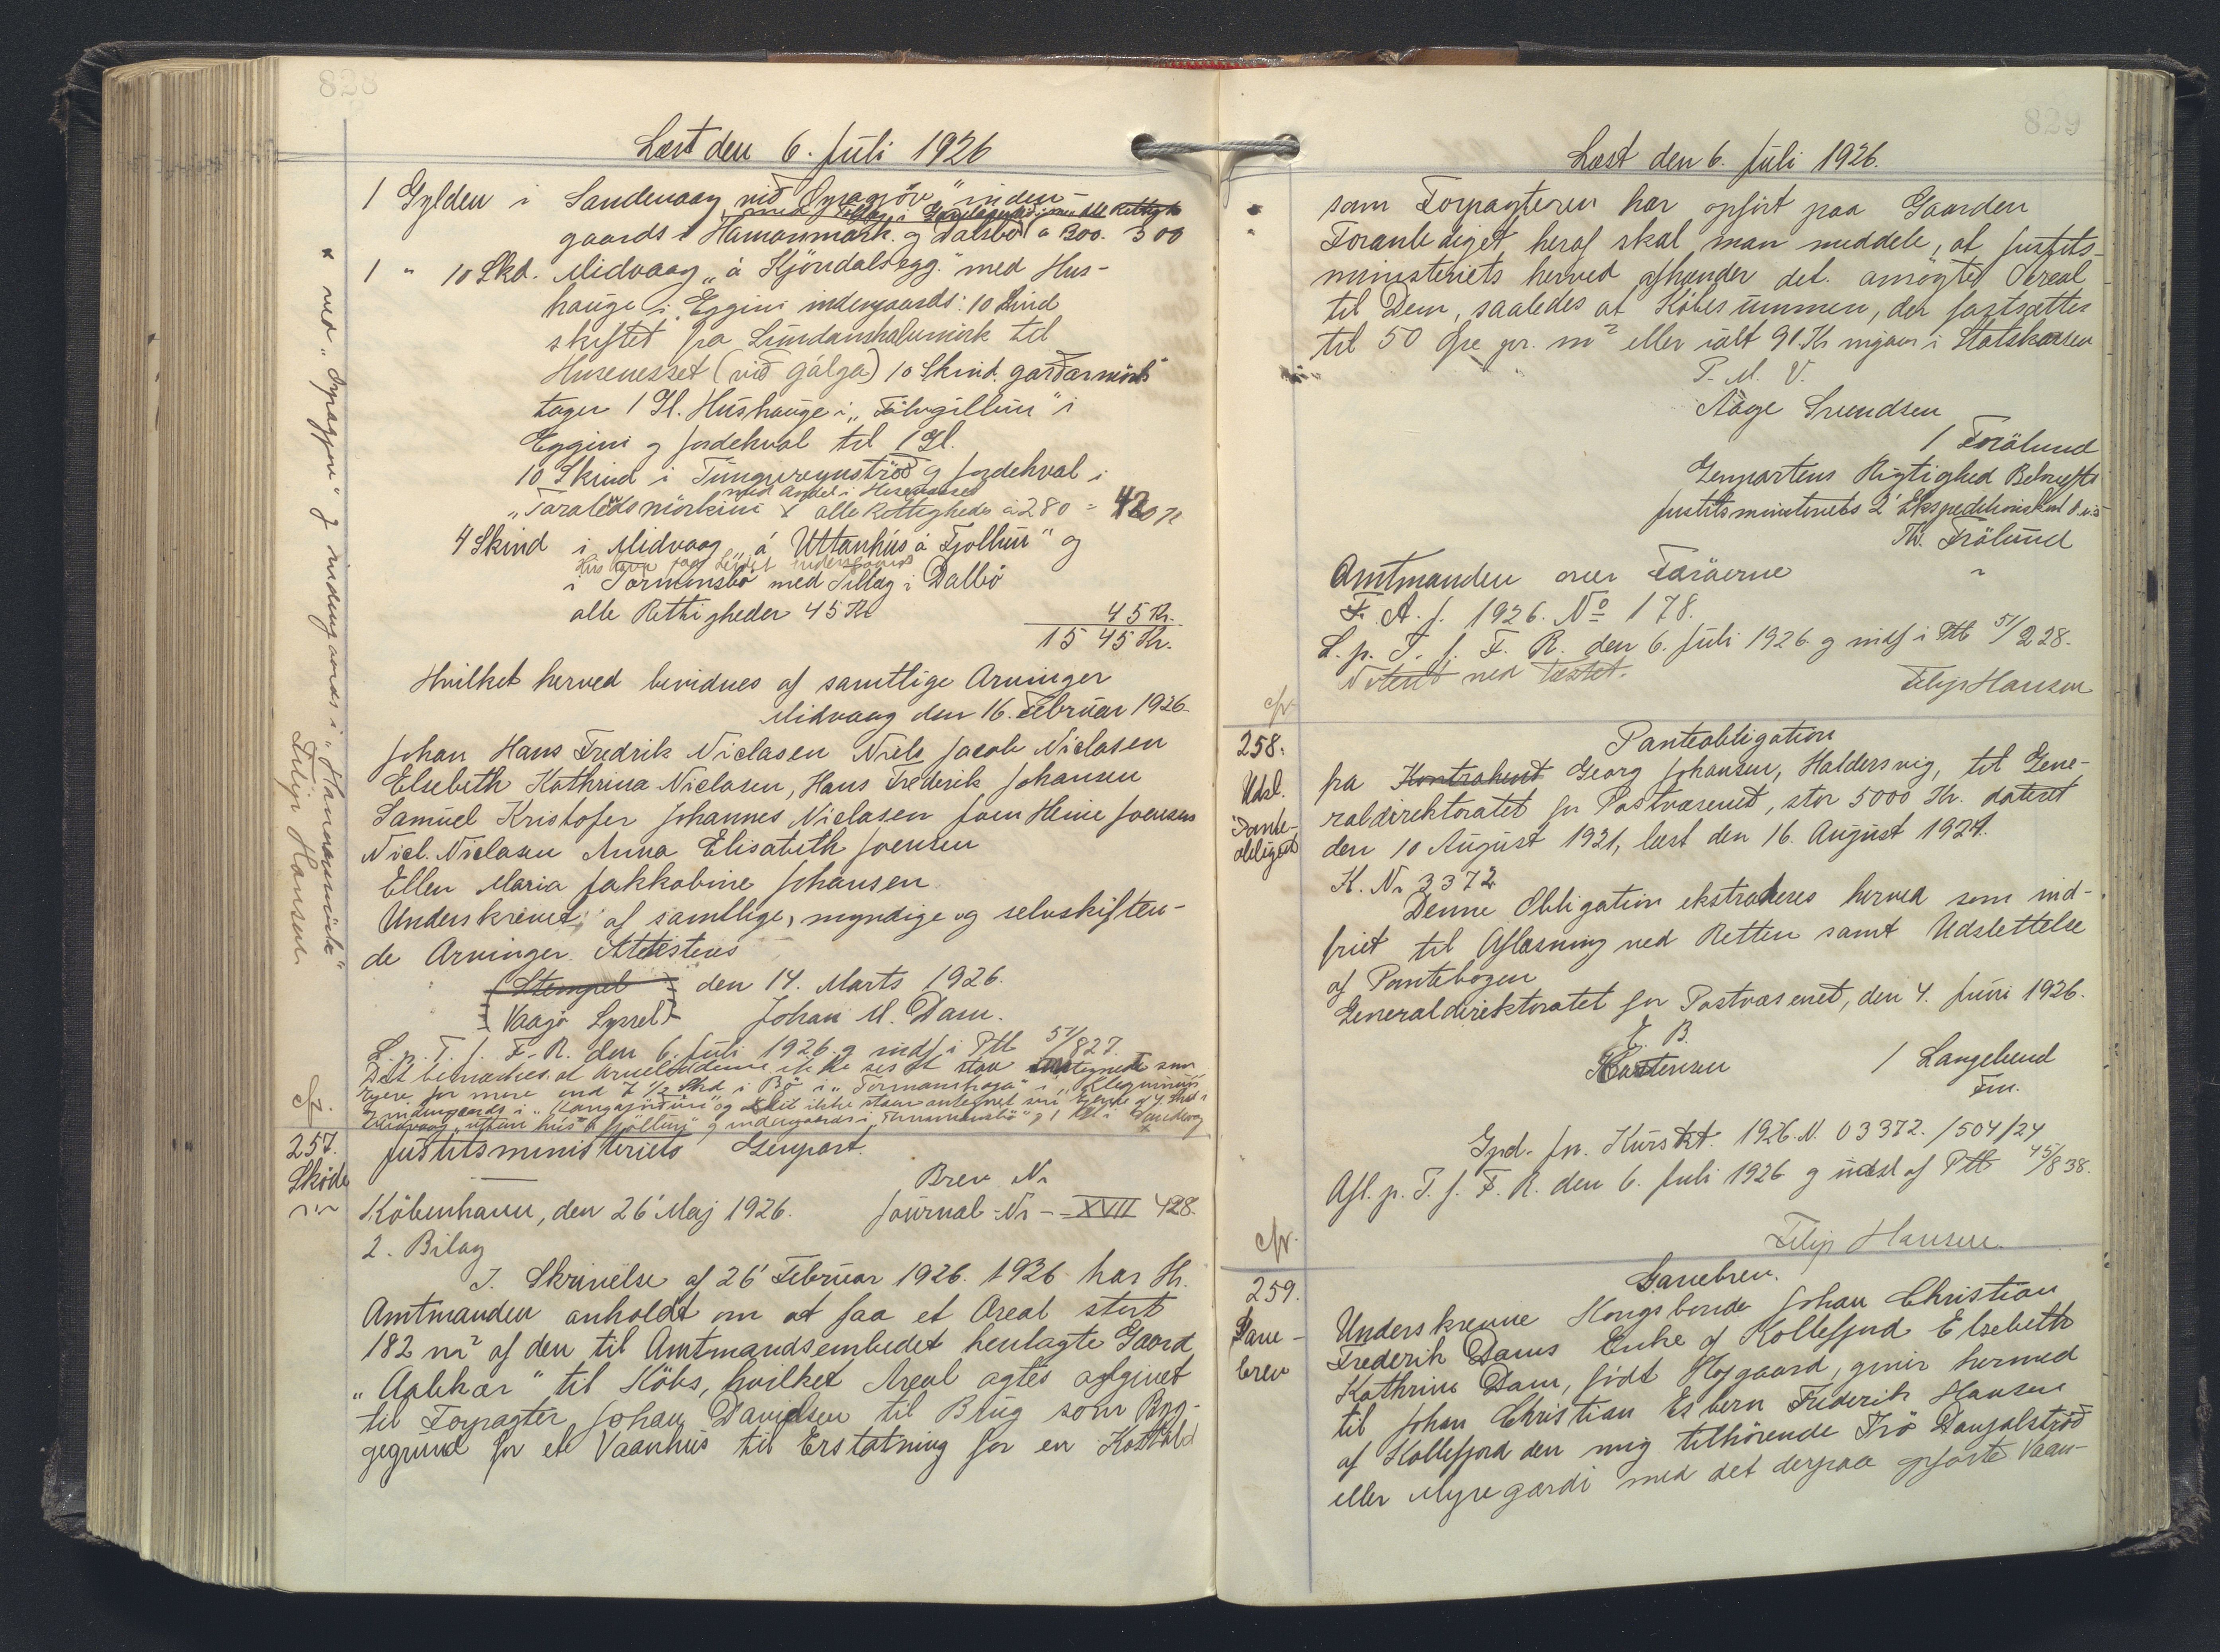 828
Læst den 6. Juli 1926
1 Gylden i Sandevaag við Oyragjóv" inden-
gaards i Hamanmørk. og Dalsbø a 300. 300
1 " 10 Skd. Midvaag „á Kjøndalsegg." med Hus-
hauge i Eggini indengaards: 10 Skind
skiftet fra Lundanshalumørk til
Husenesset (við gálga) 10 Skind. garðarmørk"
tager 1 Gl. Hushauge i „ i
Eggini og fordehval til 1 Gl.
10 Skind i og fordehval i
med Andel i Husenesset
alle Rettigheder à 280 = 420 Kr
4 Skind i Midvaag „á Uttanhús á Fjøllun" og
i Tormansbø med Tillæg i Dalbø
alle Rettigheder 45 Kr 45 Kr.
15 45 Kr.
Hvilket herved bevidnes af samtlige Arvinger
Midvaag den 16. Februar 1926.
Johan Hans Fredrik Niclasen Niels Jacob Niclasen
Elsebeth Kathrina Niclasen, Hans Frederik Johansen
Samuel Kristofer Johannes Niclasen Joen Heine Joensen
Nicl. Niclasen Anna Elisabeth Joensen
Ellen Maria Jakkobine Johansen
Underskrevet af samtlige, myndige og selvskiften-
de Arvinger. Attesteres
(Stempel) den 14. Marts 1926.
Vaagø Syssel Johan M. Dam.
L. p. T. f. F. R. den 6. Juli 1926 og indf i Ptb 51/827.
Det bemærkes at Arveladerne ikke ses at staa antegnede som
Ejere for mere end 7 1/2 Skd i Bø i „Tormanshaga" i
og indengaards i og ikke staar antegnet som Ejere af 4 Skd i
Midvaag „uttan hús á fjøllun" og indengaards i „Tormansbø" og 1 Gl i Sandevag
* med „Oyragjov" og indengaards i „Hamanmørk"
Filip Hansen
cfr.
257.
Skøde
Justitsministeriets Genpart.
Brev Nr
København, den 26' Maj 1926. Journal-Nr - XVII 428.
2. Bilag
I. Skrivelse af 26' Februar 1926. 1926 har Hr.
Amtmanden anholdt om at faa et Areal stort
182 m² af den til Amtmandsembedet henlagte Gaard
„Aalekær" til Købs, hvilket Areal agtes afgivet
til Forpagter Johan Danielsen til Brug som Byg-
gegrund for et Vaanhus til Erstatning for en Kostald
829
Læst den 6. Juli 1926.
som Forpagteren har opført paa Gaarden
Foranlediget heraf skal man meddele, at Justits-
ministeriets herved afhænder det. ansøgte Areal
til Dem, saaledes at Købesummen, der fastsættes
til 50 Øre pr. m² eller ialt 91. Kr indgaar i Statskassen
P. M. V.
Aage Svendsen
/ Frölund
Genpartens Rigtighed Bekræftes
Justitsministeriets 2' Ekspeditionskontor
Th. Frölund
Amtmanden over Færøerne
F. A. J. 1926. No 178.
L. p. T. f. F. R. den 6. Juli 1926. og indf i Ptb 51/228.
Noteret ved
Filip Hansen
cfr.
258.
Udsl.
Pante-
obligat
Panteobligation
fra Kontrahent Georg Johansen, Haldersvig, til Gene-
raldirektoratet for Postvæsenet, stor 5000 Kr. dateret
den 10 August 1921, læst den 16. August 1921.
K. Nr 3372
Denne Obligation ekstraderes herved som ind-
friet til Aflæsning ved Retten samt Udslettelse
af Pantebogen
Generaldirektoratet for Postvæsenet, den 4. Juni 1926.
E. B.
Mortensen / Langelund
Fm.
Gpd. Jnr. Kurskt. 1926. N. 03372. /504/24
Afl. p. T. f. F. R. den 6. Juli 1926 og udsl af Ptb 45/838.
Filip Hansen.
cfr.
259.
Gave-
brev
Gavebrev.
Underskrevne Kongsbonde Johan Christian
Frederik Dams Enke af Kollefjord Elsebeth
Kathrine Dam, født Højgaard, giver hermed
til Johan Christian Esbern Frederik Hansen
af Kollefjord den mig tilhørende Trø
eller Myregærdi med det derpaa opførte Vaan-